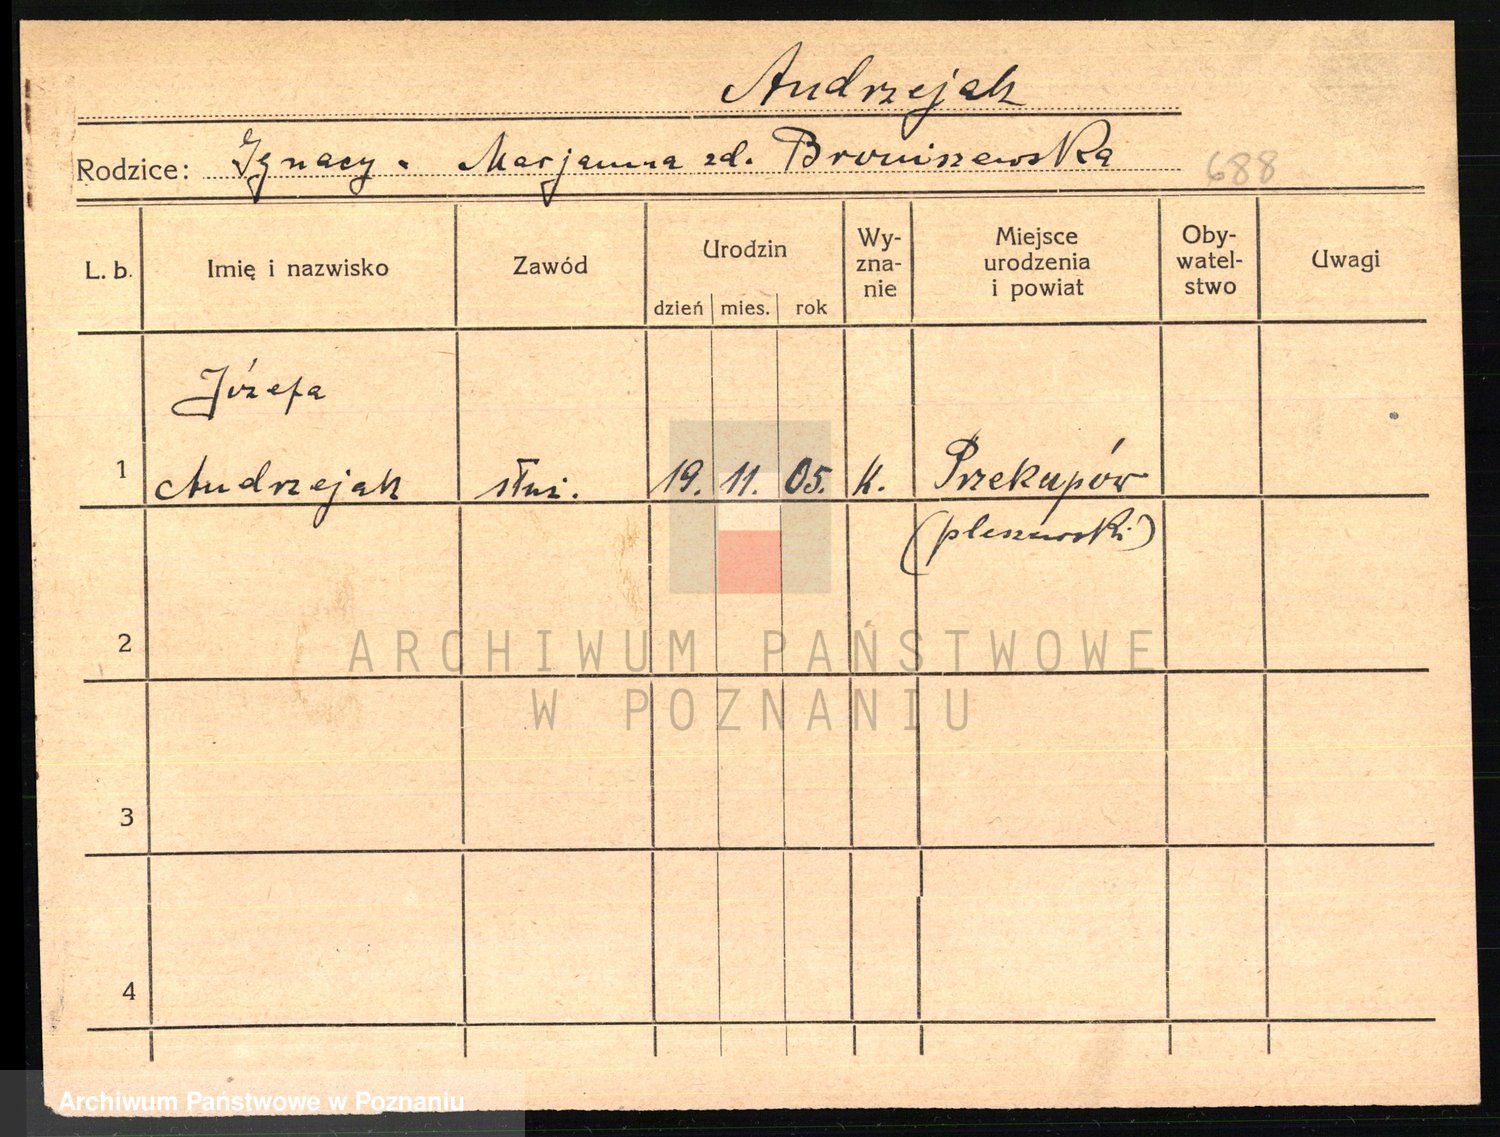 Andrzejak
Rodzice: Ignacy. Marjanna zd. Broniszewska 688
L. b. Imię i nazwisko Zawód Urodzin dzień mies. rok Wy- zna- nie Miejsce urodzenia i powiat Oby- watel- stwo Uwagi
Józefa
1 Andrzejak służ. 19. 11. 05. K. Przekupów
(pleszewski)
2
3
4
ARCHIWUM PAŃSTWOWE
W POZNANIU
Archiwum Państwowe w Poznaniu